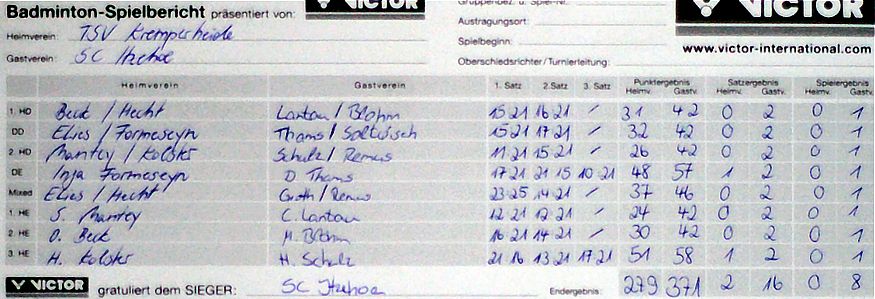 Badminton-Spielbericht präsentiert von: VICTOR Gruppenbez. u. Spiel-Nr. VICTOR
Heimverein: TSV Kremperheide Austragungsort:
Gastverein: SC Itzehoe Spielbeginn: www.victor-international.com
Oberschiedsrichter / Turnierleitung:
Heimverein Gastverein 1. Satz 2. Satz 3. Satz Punktergebnis Satzergebnis Spielergebnis
Heimv. Gastv. Heimv. Gastv. Heimv. Gastv.
1. HD Beck / Hecht Lantau / Blohm 15 21 16 21 / 31 42 0 2 0 1
DD Elies / Formeseyn Thams / Soltwisch 15 21 17 21 / 32 42 0 2 0 1
2. HD Mantey / Kolster Schulz / Remus 11 21 15 21 / 26 42 0 2 0 1
DE Inja Formeseyn D. Thams 17 21 21 15 10 21 48 57 1 2 0 1
Mixed Elies / Hecht Groth / Remus 23 25 14 21 / 37 46 0 2 0 1
1. HE S. Mantey C. Lantau 12 21 12 21 / 24 42 0 2 0 1
2. HE O. Beck M. Blohm 16 21 14 21 / 30 42 0 2 0 1
3. HE H. Kolster H. Schulz 21 16 13 21 17 21 51 58 1 2 0 1
VICTOR gratuliert dem SIEGER: SC Itzehoe Endergebnis: 279 371 2 16 0 8